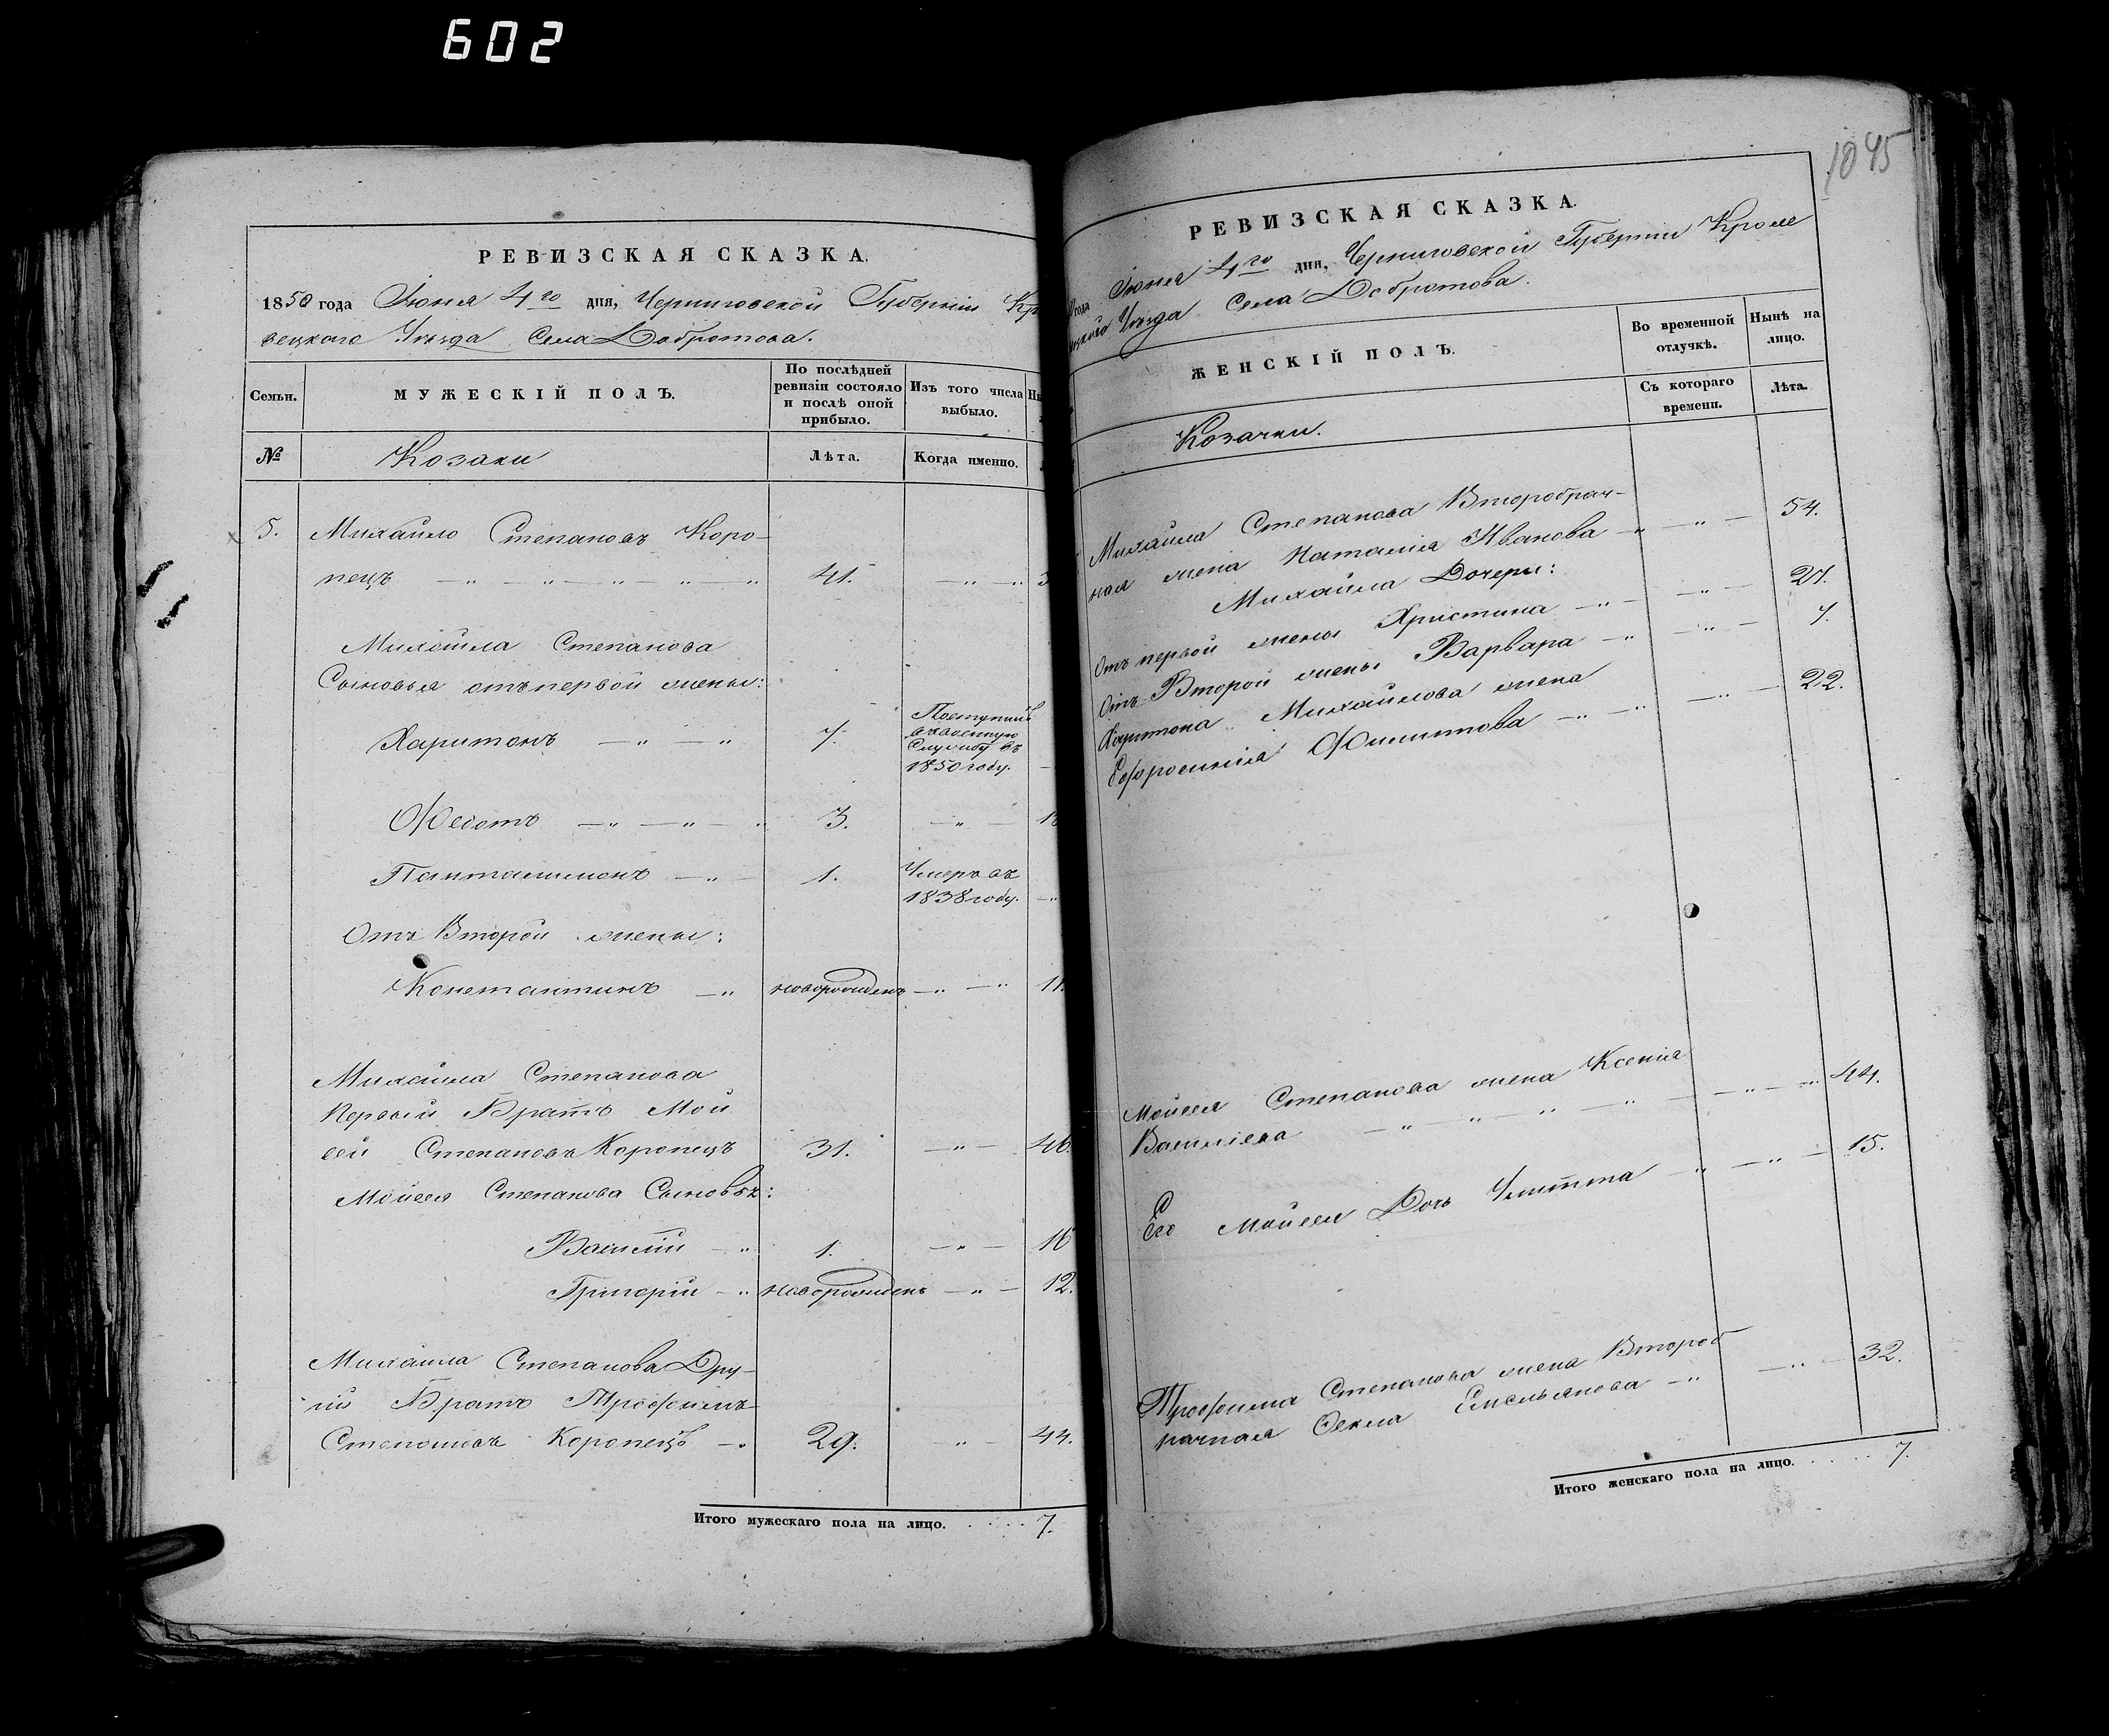 602
РЕВИЗСКАЯ СКАЗКА.
1850 года Іюня 4го дня, Черниговской Губерніи Кро
вецкого Уѣзда Села Добротова.
Семьи.
МУЖЕСКІЙ ПОЛЪ.
По послѣдней
ревизіи состояло
и послѣ оной
прибыло.
Изъ того числа
выбыло.
№
Козаки
Лѣта.
Когда именно.
5. Михайло Степановъ Коро-
пецъ — „ — „ — „ — „ 41. — „ — „
Михайла Степанова
Сыновья отъ первой жены:
Харитонъ — „ — „ 7. Поступилъ
въ военную
Службу въ
1850 году.
Ѳедотъ — „ — „ — „ 3. — „ —
Пантелимонъ — „ — 1. Умеръ въ
1838 году.
Отъ Второй жены:
Константинъ — „ новорожденъ — „ — „ 11.
Михайла Степанова
Первый Братъ Мои
сей Степановъ Коропецъ 31. — „ — 46.
Мойсея Степанова Сыновья:
Василій — „ 1. — „ — 16
Григорій — „ новорожденъ — „ — 12.
Михайла Степанова Дру-
гій Братъ Трофимъ
Степановъ Коропецъ — „ 29. „ — 44.
Итого мужескаго пола на лицо. . . . . 7.
1045
РЕВИЗСКАЯ СКАЗКА.
года Іюня 4го дня, Черниговской Губерніи Кроле
вецкого Уѣзда Села Добротова.
ЖЕНСКІЙ ПОЛЪ.
Во временной
отлучкѣ.
Нынѣ на
лицо.
Съ котораго
времени.
Лѣта.
Козачки.
Михайла Степанова Второбрач-
ная жена Наталія Иванова — „ — „ — 54.
Михайла Дочери:
Отъ первой жены Христина — „ — — „ — 27.
Отъ Второй жены Варвара — „ — „ — 7.
Харитона Михайлова жена
Ефросинія Филиппова — „ — „ — „ — 22.
Мойсея Степанова жена Ксенія
Василіева — „ — „ — „ — „ — „ — „ 44.
Его Мойсея Дочь Улитта — „ — „ — 15.
Трофима Степанова жена Второб
рачная Ѳекла Емельянова — „ — „ — 32.
Итого женскаго пола на лицо. . . . . 7.